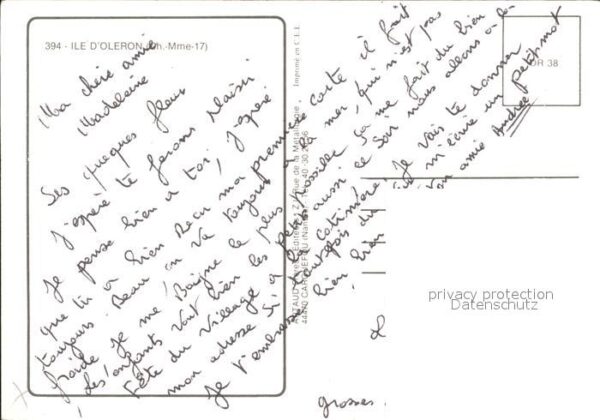 394 - ILE D'OLERON (Ch.-Mme-17)
Imprimé en C.E.E.
OR 38
Ma chère amie
Madeleine
Ses quelques fleurs
j'espère te ferons plaisir
Je pense bien a toi, j'espère
que tu a bien reçu ma première carte il fait
toujours Beau, on va toujours a la mer, qui n'est pas
froide Je me Baigne le plus possible Sa me fait du bien
Les enfants vont bien les petits aussi ce soir nous allons a la
Fête du Village a la Cotinière. Je Vais te donner
mon adresse Si toutefois tu m'écrie un petit mot
Je t'embrasse bien, bien
Ton amie Andrée
grosses
privacy protection
Datenschutz